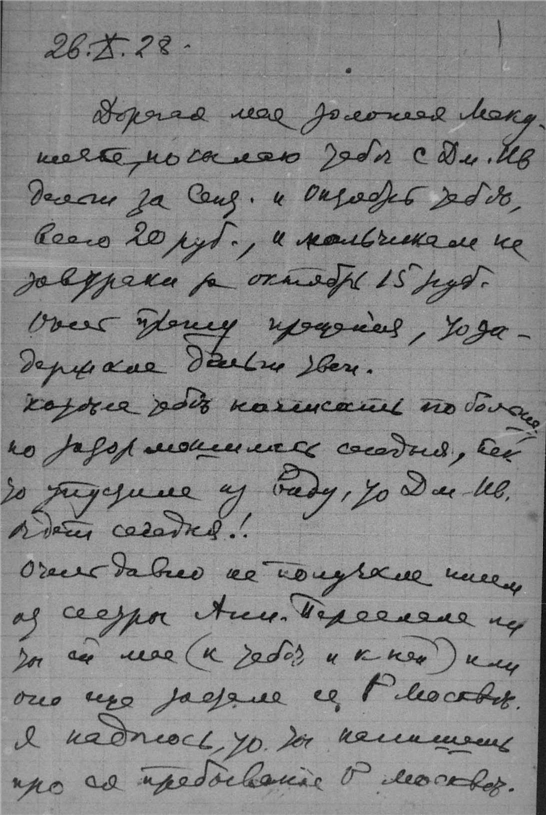 26.X.28.
Дорогая моя золотая Маку-
посылаю тебѣ с Дм. Ив
деньги за Сент. и Октябрь тебѣ,
всего 20 руб., и мальчикам на
завтраки за октябрь 15 руб.
Очень прошу прощения, что за-
держала деньги твои.
Хотела тебѣ написать побольше,
но сегодня, так
что упустила из виду, что Дм. Ив.
едет сегодня!.
Очень давно не получала писем
от сестры Анны. Переслала ли
ты ей мое (к тебѣ и к ней) или
оно еще застало ее в Москвѣ.
Я надѣюсь, что ты напишешь
про ея пребывание в Москвѣ.